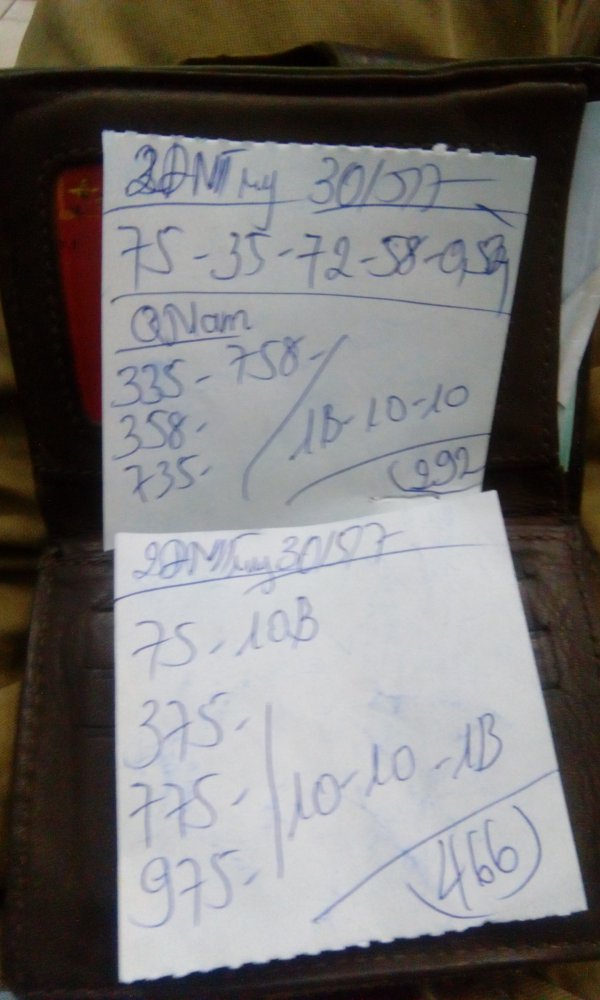 2DMTmy 30/5/17
75-35-72-58-0,5B
QNam
335-758-
358-
735-
1B-10-10
292
2DMTmy 30/5/17
75-10B
375-
775-
975-
10-10-1B
(466)